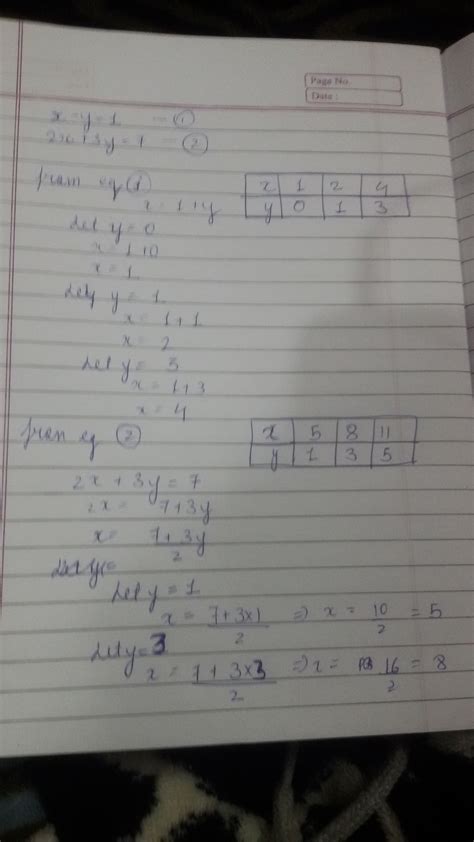 Page No.
Date :
x - y = 1 — ①
2x + 3y = 7 — ②
from eq ①
x = 1 + y
x 1 2 4
y 0 1 3
Let y = 0
x = 1 + 0
x = 1
Let y = 1
x = 1 + 1
x = 2
Let y = 3
x = 1 + 3
x = 4
from eq ②
x 5 8 11
y 1 3 5
2x + 3y = 7
2x = 7 + 3y
x = 7 + 3y / 2
Let y =
Let y = 1
x = 7 + 3×1 / 2 ⇒ x = 10 / 2 = 5
Let y = 3
x = 7 + 3×3 / 2 ⇒ x = 16 / 2 = 8